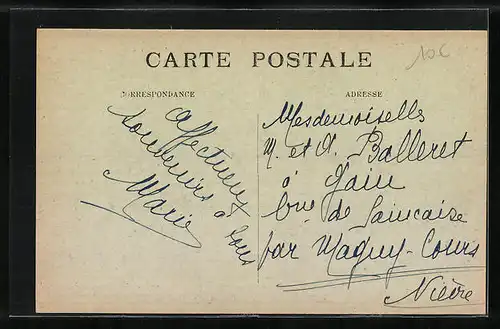 CARTE POSTALE
10C
CORRESPONDANCE
ADRESSE
Affectueux
souvenirs à tous
Marie
Mesdemoiselles
M. et A. Balleret
à Gain
Cne de Saincaize
par Magny-Cours
Nièvre